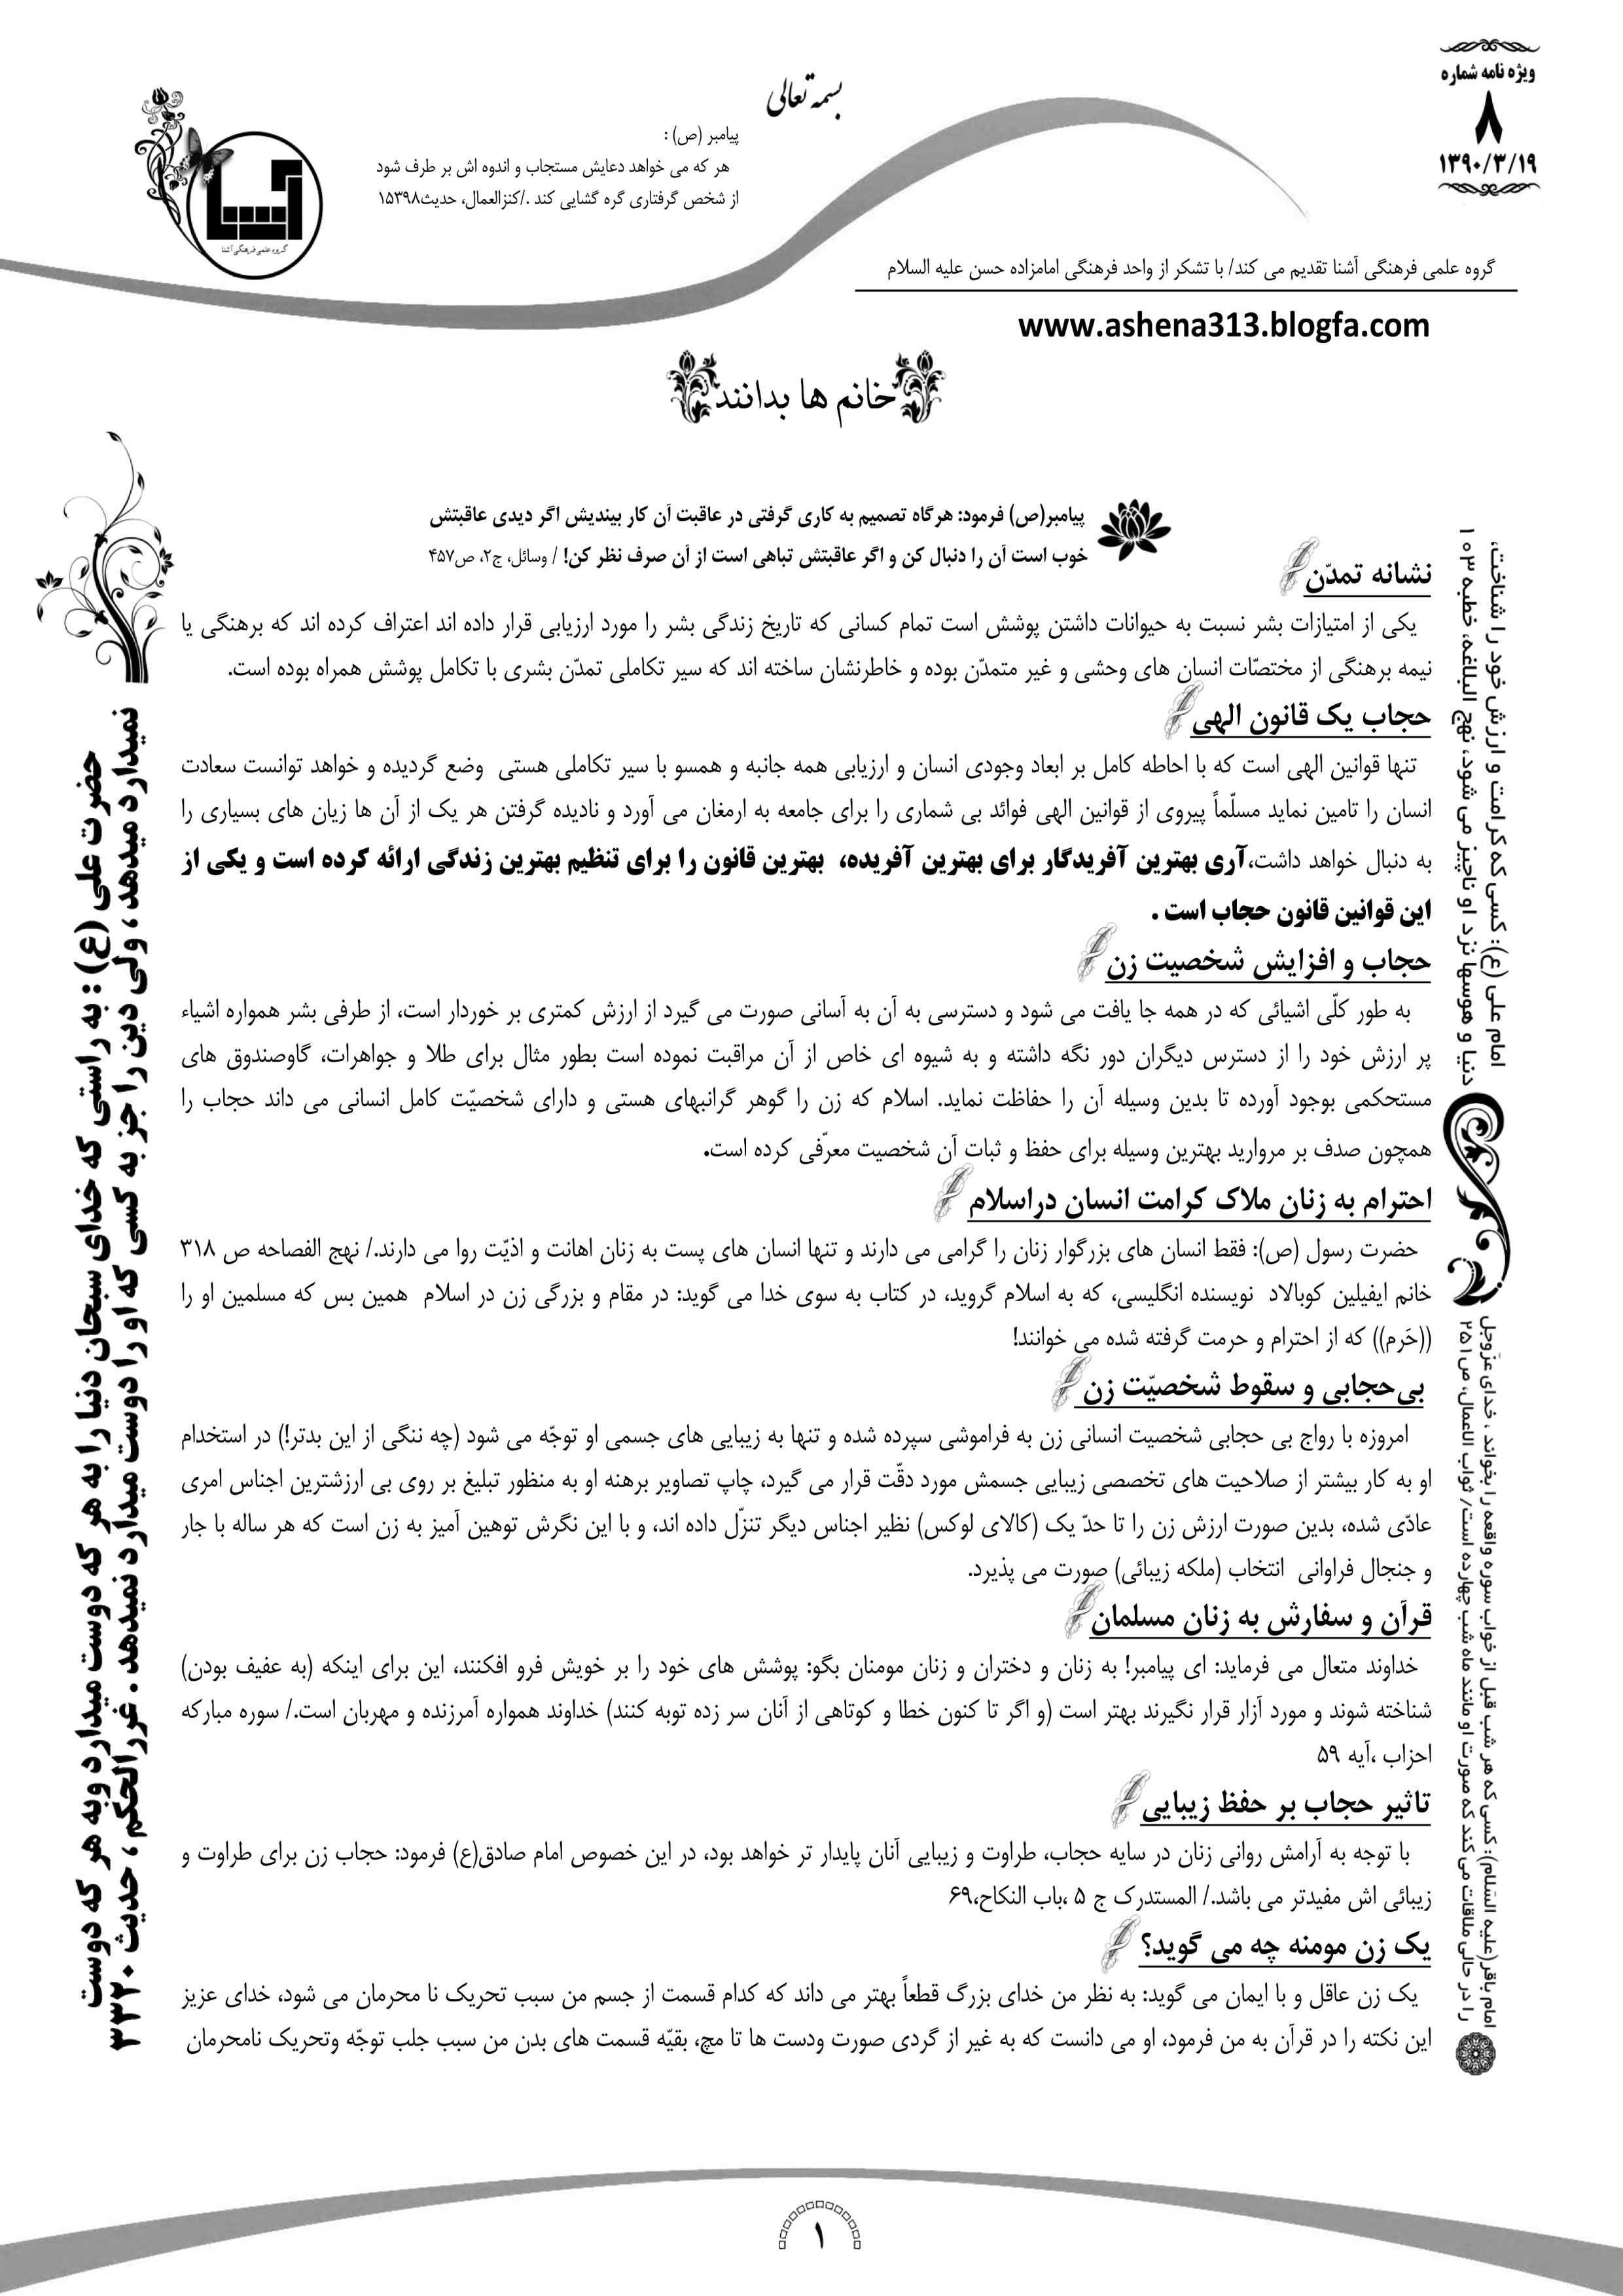 ویژه نامه شماره
۸
۱۳۹۰/۳/۱۹
بسمه تعالی
پیامبر (ص) :
هر که می خواهد دعایش مستجاب و اندوه اش بر طرف شود
از شخص گرفتاری گره گشایی کند ./کنزالعمال، حدیث۱۵۳۹۸
گروه علمی فرهنگی آشنا
گروه علمی فرهنگی آشنا تقدیم می کند/ با تشکر از واحد فرهنگی امامزاده حسن علیه السلام
www.ashena313.blogfa.com
خانم ها بدانند
پیامبر(ص) فرمود: هرگاه تصمیم به کاری گرفتی در عاقبت آن کار بیندیش اگر دیدی عاقبتش
خوب است آن را دنبال کن و اگر عاقبتش تباهی است از آن صرف نظر کن! / وسائل، ج۲، ص۴۵۷
نشانه تمدّن
یکی از امتیازات بشر نسبت به حیوانات داشتن پوشش است تمام کسانی که تاریخ زندگی بشر را مورد ارزیابی قرار داده اند اعتراف کرده اند که برهنگی یا
نیمه برهنگی از مختصّات انسان های وحشی و غیر متمدّن بوده و خاطرنشان ساخته اند که سیر تکاملی تمدّن بشری با تکامل پوشش همراه بوده است.
حجاب یک قانون الهی
تنها قوانین الهی است که با احاطه کامل بر ابعاد وجودی انسان و ارزیابی همه جانبه و همسو با سیر تکاملی هستی وضع گردیده و خواهد توانست سعادت
انسان را تامین نماید مسلّماً پیروی از قوانین الهی فوائد بی شماری را برای جامعه به ارمغان می آورد و نادیده گرفتن هر یک از آن ها زیان های بسیاری را
به دنبال خواهد داشت،آری بهترین آفریدگار برای بهترین آفریده، بهترین قانون را برای تنظیم بهترین زندگی ارائه کرده است و یکی از
این قوانین قانون حجاب است .
حجاب و افزایش شخصیت زن
به طور کلّی اشیائی که در همه جا یافت می شود و دسترسی به آن به آسانی صورت می گیرد از ارزش کمتری بر خوردار است، از طرفی بشر همواره اشیاء
پر ارزش خود را از دسترس دیگران دور نگه داشته و به شیوه ای خاص از آن مراقبت نموده است بطور مثال برای طلا و جواهرات، گاوصندوق های
مستحکمی بوجود آورده تا بدین وسیله آن را حفاظت نماید. اسلام که زن را گوهر گرانبهای هستی و دارای شخصیّت کامل انسانی می داند حجاب را
همچون صدف بر مروارید بهترین وسیله برای حفظ و ثبات آن شخصیت معرّفی کرده است.
احترام به زنان ملاک کرامت انسان دراسلام
حضرت رسول (ص): فقط انسان های بزرگوار زنان را گرامی می دارند و تنها انسان های پست به زنان اهانت و اذیّت روا می دارند./ نهج الفصاحه ص ۳۱۸
خانم ایفیلین کوبالاد نویسنده انگلیسی، که به اسلام گروید، در کتاب به سوی خدا می گوید: در مقام و بزرگی زن در اسلام همین بس که مسلمین او را
((حَرم)) که از احترام و حرمت گرفته شده می خوانند!
بی‌حجابی و سقوط شخصیّت زن
امروزه با رواج بی حجابی شخصیت انسانی زن به فراموشی سپرده شده و تنها به زیبایی های جسمی او توجّه می شود (چه ننگی از این بدتر!) در استخدام
او به کار بیشتر از صلاحیت های تخصصی زیبایی جسمش مورد دقّت قرار می گیرد، چاپ تصاویر برهنه او به منظور تبلیغ بر روی بی ارزشترین اجناس امری
عادّی شده، بدین صورت ارزش زن را تا حدّ یک (کالای لوکس) نظیر اجناس دیگر تنزّل داده اند، و با این نگرش توهین آمیز به زن است که هر ساله با جار
و جنجال فراوانی انتخاب (ملکه زیبائی) صورت می پذیرد.
قرآن و سفارش به زنان مسلمان
خداوند متعال می فرماید: ای پیامبر! به زنان و دختران و زنان مومنان بگو: پوشش های خود را بر خویش فرو افکنند، این برای اینکه (به عفیف بودن)
شناخته شوند و مورد آزار قرار نگیرند بهتر است (و اگر تا کنون خطا و کوتاهی از آنان سر زده توبه کنند) خداوند همواره آمرزنده و مهربان است./ سوره مبارکه
احزاب ،آیه ۵۹
تاثیر حجاب بر حفظ زیبایی
با توجه به آرامش روانی زنان در سایه حجاب، طراوت و زیبایی آنان پایدار تر خواهد بود، در این خصوص امام صادق(ع) فرمود: حجاب زن برای طراوت و
زیبائی اش مفیدتر می باشد./ المستدرک ج ۵ ،باب النکاح،۶۹
یک زن مومنه چه می گوید؟
یک زن عاقل و با ایمان می گوید: به نظر من خدای بزرگ قطعاً بهتر می داند که کدام قسمت از جسم من سبب تحریک نا محرمان می شود، خدای عزیز
این نکته را در قرآن به من فرمود، او می دانست که به غیر از گردی صورت ودست ها تا مچ، بقیّه قسمت های بدن من سبب جلب توجّه وتحریک نامحرمان
امام علی (ع): کسی که کرامت و ارزش خود را شناخت،
دنیا و هوسها نزد او ناچیز می شود، نهج البلاغه، خطبه ۱۰۳
امام باقر(علیه السّلام): کسی که هر شب قبل از خواب سوره واقعه را بخواند ، خدای عزّوجل
را در حالی ملاقات می کند که صورت او مانند ماه شب چهارده است/ ثواب الاعمال، ص۲۵۱
حضرت علی (ع) : به راستی که خدای سبحان دنیا را به هر که دوست میدارد وبه هر که دوست
نمیدارد میدهد ، ولی دین را جز به کسی که او را دوست میدارد نمیدهد . غررالحکم ، حدیث ۳۳۲۰
۱